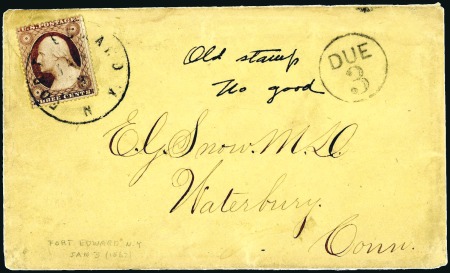 U.S. POSTAGE
THREE CENTS
FORT EDWARD N.Y.
Old stamp
No good
DUE
3
E.G. Snow M.D.
Waterbury.
Conn.
FORT EDWARD N.Y
JAN 3